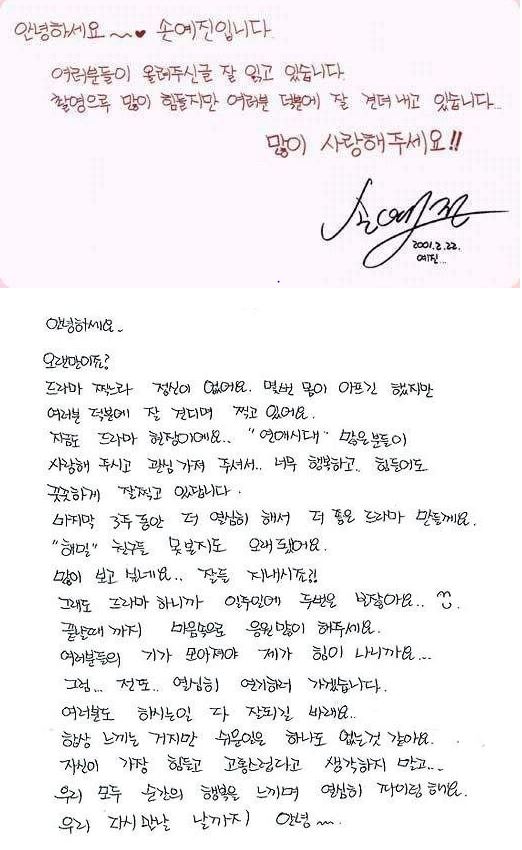 안녕하세요 ~♥ 손예진입니다
여러분들이 올려주신글 잘 읽고 있습니다.
촬영으루 많이 힘들지만 여러분 덕분에 잘 견뎌 내고 있습니다..
많이 사랑해주세요!!
손예진
2001.2.22.
예진...
안녕하세요.
오랜만이죠?
드라마 찍느라 정신이 없어요. 몇번 몸이 아프긴 했지만
여러분 덕분에 잘 견디며 찍고 있어요.
지금도 드라마 현장이에요.. "연애시대" 많은분들이
사랑해 주시고 관심 가져 주셔서.. 너무 행복하고.. 힘들어도
꿋꿋하게 잘찍고 있답니다.
마지막 3주동안 더 열심히 해서 더 좋은 드라마 만들께요.
"해밀" 친구들 못보지도 오래 됐어요.
많이 보고 싶네요.. 잘들 지내시죠?!
그래도 드라마 하니까 일주일에 두번은 보잖아요..
끝날때 까지 마음속으로 응원많이 해주세요.
여러분들의 기가 모아져야 제가 힘이 나니까요...
그럼... 전또.. 열심히 연기하러 가겠습니다.
여러분도 하시는일 다 잘되길 바래요..
항상 느끼는 거지만 쉬운일은 하나도 없는것 같아요.
자신이 가장 힘들고 고통스럽다고 생각하지 말고...
우리 모두 순간의 행복을 느끼며 열심히 파이팅 해요.
우리 다시 만날 날까지 안녕~.